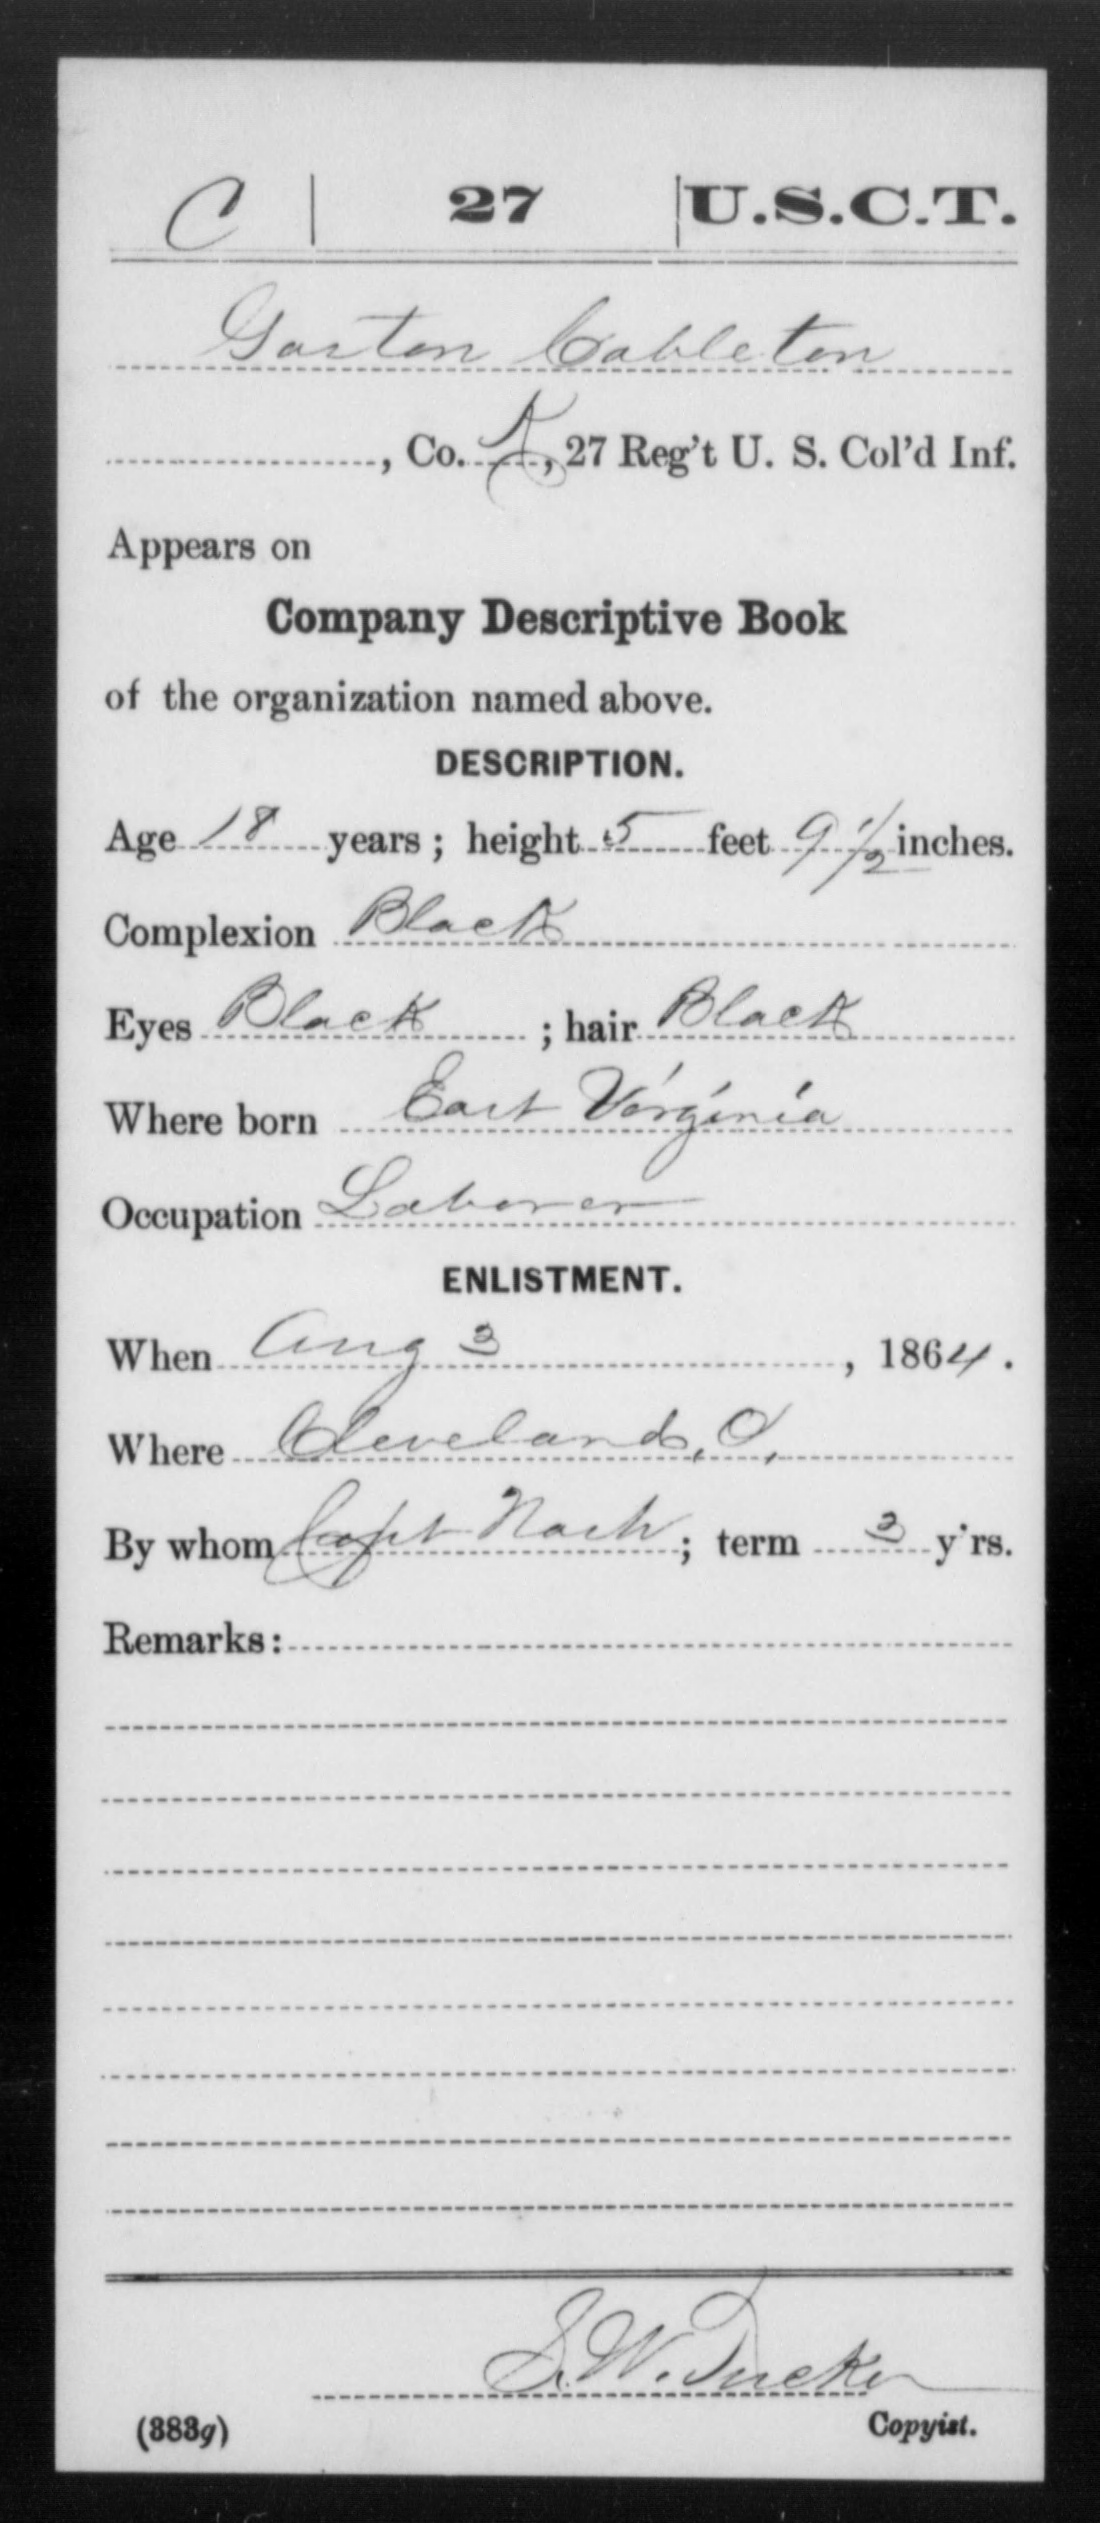 C | 27 | U.S.C.T.
Gaston Cableton
, Co. K, 27 Reg't U. S. Col'd Inf.
Appears on
Company Descriptive Book
of the organization named above.
DESCRIPTION.
Age 18 years; height 5 feet 9 1/2 inches.
Complexion Black
Eyes Black ; hair Black
Where born East Virginia
Occupation Laborer
ENLISTMENT.
When Aug 3, 1864.
Where Cleveland, O,
By whom Capt Nash; term 3 y'rs.
Remarks:
S. W. Tucker
(383g) Copyist.